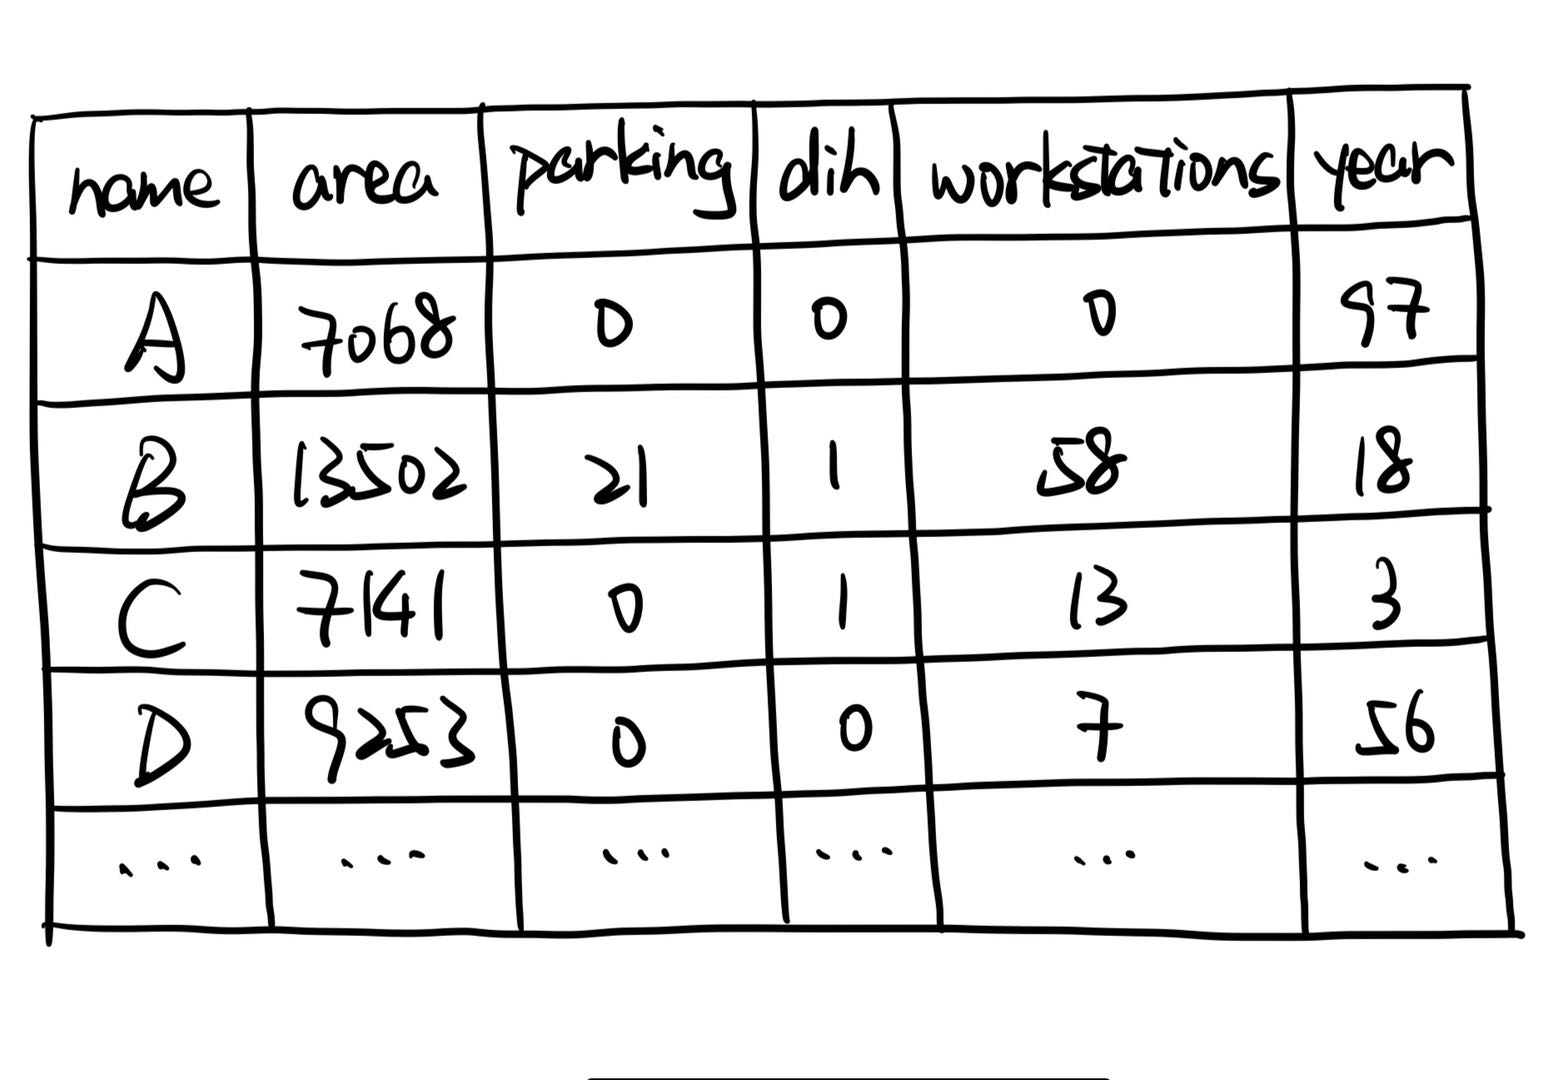 name area parking dih workstations year
A 7068 0 0 0 97
B 13502 21 1 58 18
C 7141 0 1 13 3
D 9253 0 0 7 56
... ... ... ... ... ...